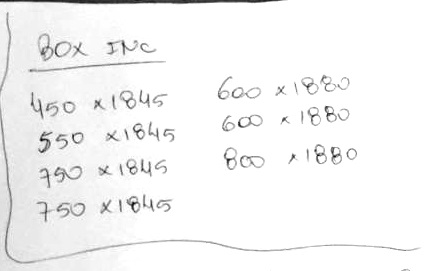 BOX INC
450 x 1845
550 x 1845
750 x 1845
750 x 1845
600 x 1880
600 x 1880
800 x 1880